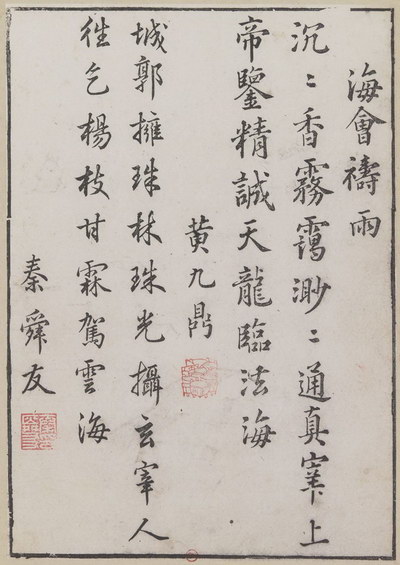 海會禱雨
沉〻香霧靄渺〻通真宰上
帝鑒精誠天龍臨法海
黃九鼎
城郭擁珠林珠光攝玄宰人
往乞楊枝甘霖駕雲海
秦舜友